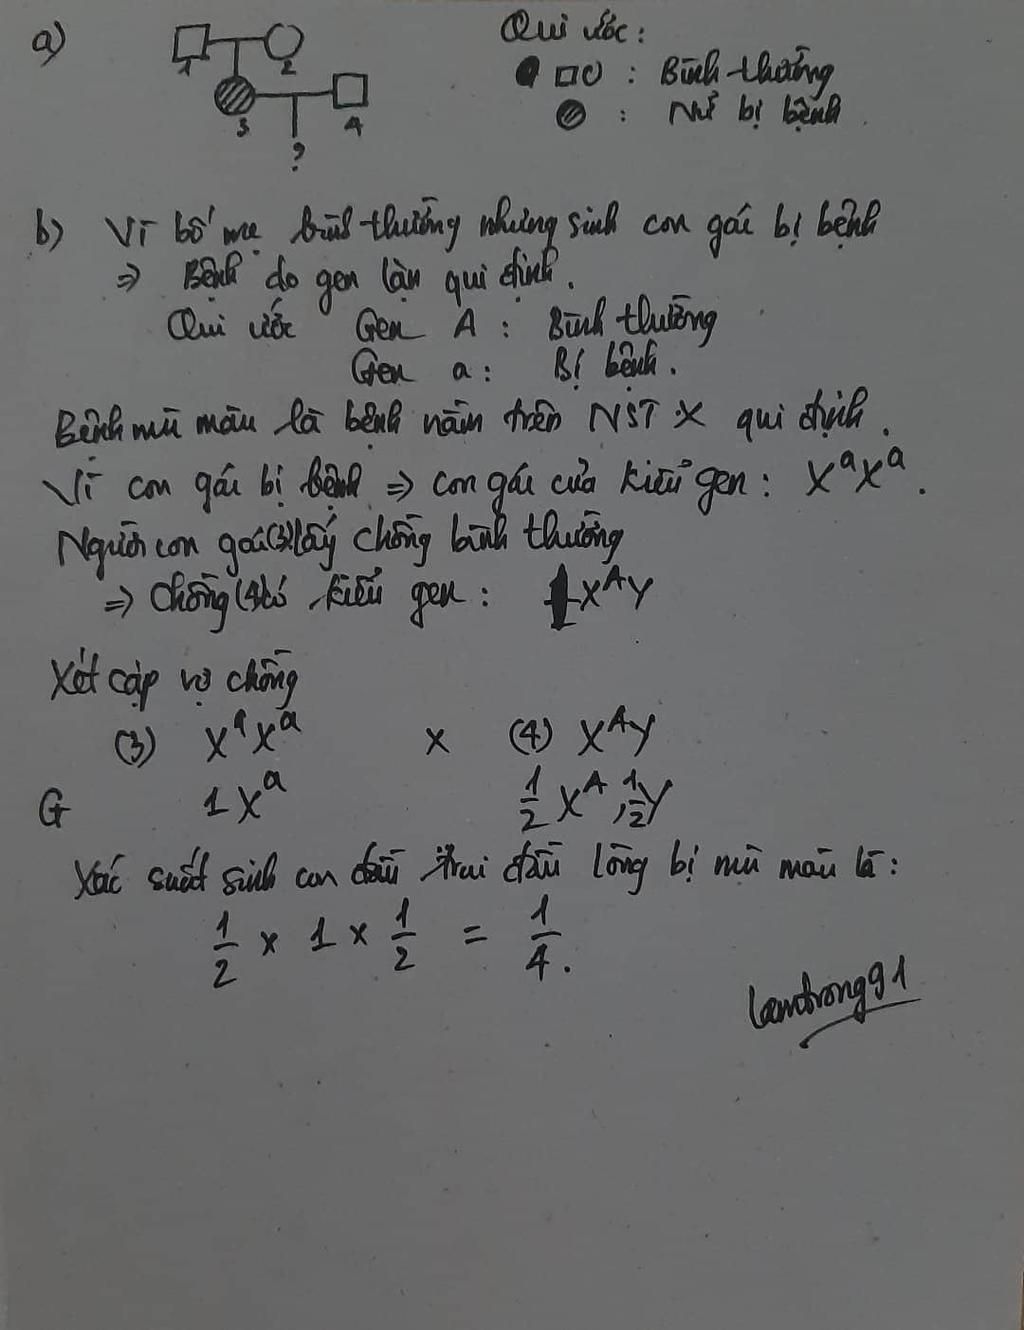 a)
1 2
3 4
?
Qui ước:
□○ : Bình thường
: Nữ bị bệnh.
b) Vì bố mẹ bình thường nhưng sinh con gái bị bệnh
⇒ Bệnh do gen lặn qui định.
Qui ước Gen A : Bình thường
Gen a : Bị bệnh.
Bệnh mù màu là bệnh nằm trên NST X qui định.
Vì con gái bị bệnh ⇒ con gái của kiểu gen : XᵃXᵃ.
Người con gái(3)lấy chồng bình thường
⇒ Chồng(4)có kiểu gen : XᴬY
Xét cặp vợ chồng
(3) XᵃXᵃ x (4) XᴬY
G 1Xᵃ 1/2 Xᴬ, 1/2 Y
Xác suất sinh con đầu trai đầu lòng bị mù màu là :
1/2 x 1 x 1/2 = 1/4.
lamtrong91